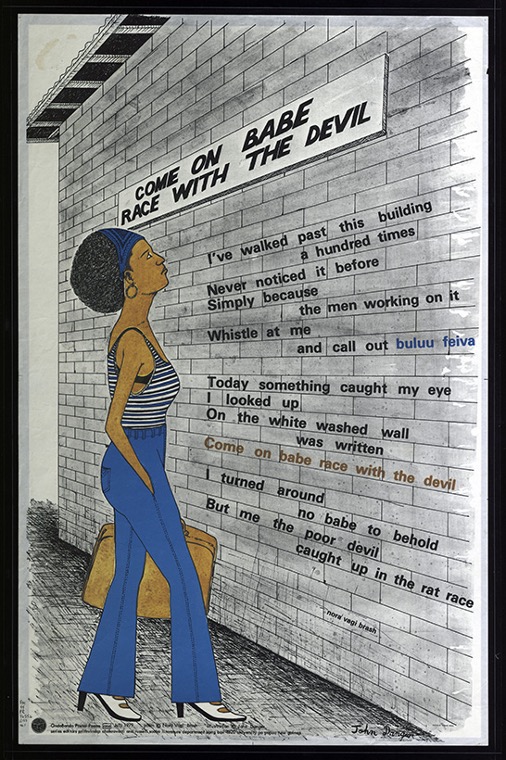 COME ON BABE
RACE WITH THE DEVIL
I've walked past this building
a hundred times
Never noticed it before
Simply because
the men working on it
Whistle at me
and call out buluu feiva
Today something caught my eye
I looked up
On the white washed wall
was written
Come on babe race with the devil
I turned around
no babe to behold
But me the poor devil
caught up in the rat race
nora vagi brash